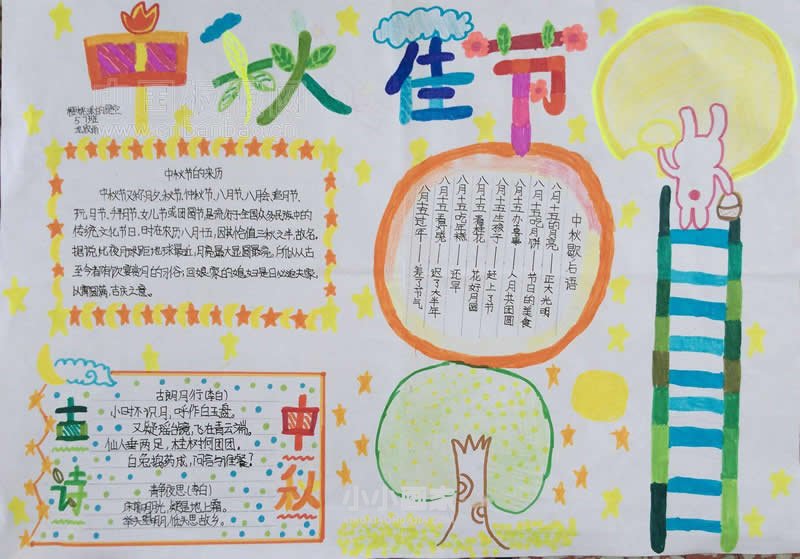 中秋佳节
5、7班
中秋节的来历
中秋节又称月夕、秋节、仲秋节、八月节、八月会、追月节、
玩月节、拜月节、女儿节或团圆节,是流行于全国众多民族中的
传统文化节日,时在农历八月十五,因其恰值三秋之半,故名。
据说此夜月球距地球最近,月亮最大最圆最亮。所以从古
至今都有饮宴赏月的习俗;回娘家的媳妇是日必返夫家,
以寓圆满、吉庆之意。
中秋歇后语
八月十五的月亮——正大光明
八月十五吃月饼——节日的美食
八月十五办喜事——人月共团圆
八月十五生孩子——赶上了节
八月十五看桂花——花好月圆
八月十五吃年糕——还早
八月十五看灯笼——迟了大半年
八月十五过年——差了节气
古诗
中秋
古朗月行(李白)
小时不识月,呼作白玉盘。
又疑瑶台镜,飞在青云端。
仙人垂两足,桂树何团团。
白兔捣药成,问言与谁餐?
静夜思(李白)
床前明月光,疑是地上霜。
举头望明月,低头思故乡。
www.cnbanbao.cn
小小画家
XIAOXIAOHUAJIA.CN